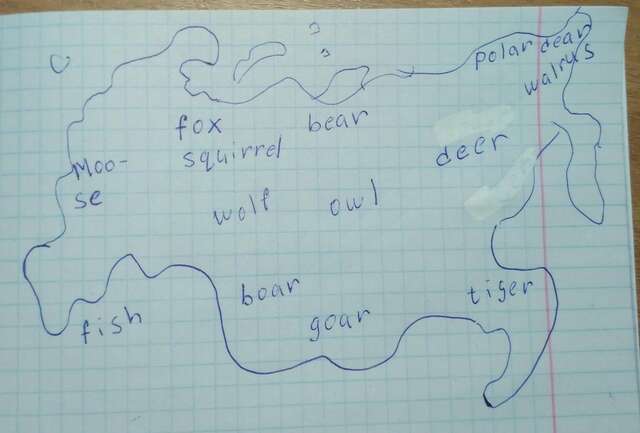 polar dear
walrus
fox
bear
squirrel
deer
Moo-
se
wolf
owl
boar
tiger
goar
fish